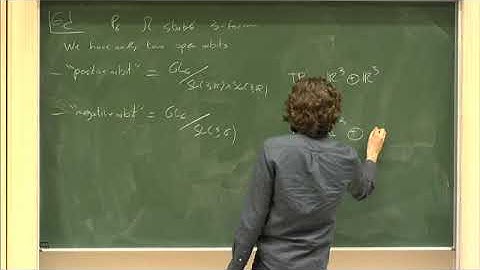 6d P₆ Ω stable 3-form
We have only two open orbits
- "positive orbit" = GL₆ / SL(3,ℝ)×SL(3,ℝ)
ℝ³ ⊕ ℝ³
- "negative orbit" = GL₆ / SL(3,ℂ)
⊕